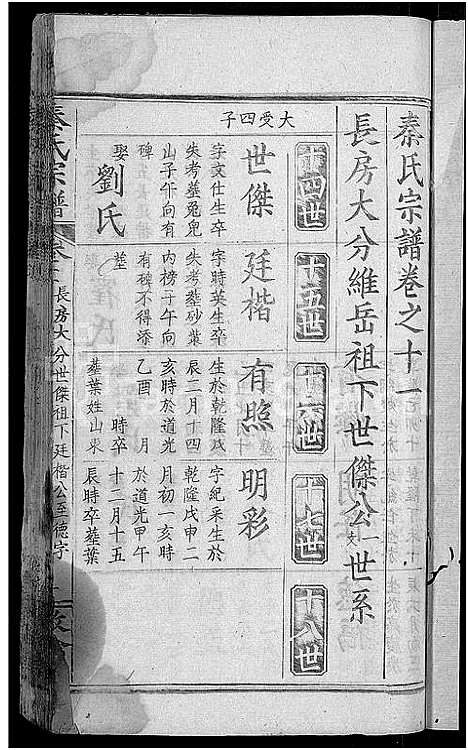 秦氏宗譜卷之十一
長房大分維岳祖下世傑公一支世系
十四世
十五世
十六世
十七世
十八世
大受四子
世傑
字文仕生卒
失考塟兎兒
山子午向有
碑
娶劉氏
塟
廷楷
字時英生卒
失考塟砂葉
內榜子午向
有碑不得添
塟
有照
生於乾隆戊
辰二月十四
亥時於道光
乙酉 月
時卒
塟葉姓山東
明彩
字紀采生於
乾隆戊申二
月初一亥時
於道光甲午
十二月十五
辰時卒塟葉
秦氏宗譜
長房大分世傑祖下 廷楷公至德字